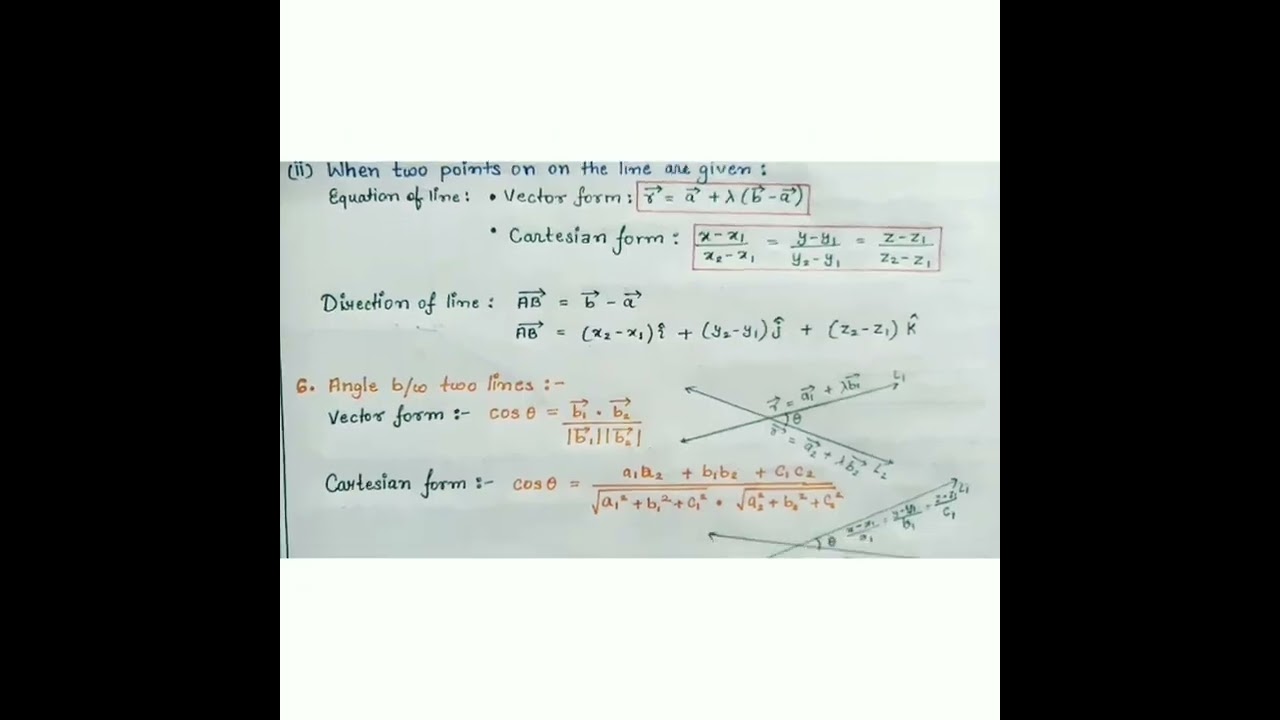 (ii) When two points on on the line are given :
Equation of line : • Vector form : r⃗ = a⃗ + λ (b⃗ - a⃗)
• Cartesian form : (x - x₁)/(x₂ - x₁) = (y - y₁)/(y₂ - y₁) = (z - z₁)/(z₂ - z₁)
Direction of line : AB⃗ = b⃗ - a⃗
AB⃗ = (x₂ - x₁) î + (y₂ - y₁) ĵ + (z₂ - z₁) k̂
6. Angle b/w two lines :-
Vector form :- cos θ = (b₁⃗ · b₂⃗)/(|b₁⃗| |b₂⃗|)
L₁
r⃗ = a₁⃗ + λb₁⃗
θ
r⃗ = a₂⃗ + λb₂⃗
L₂
Cartesian form :- cos θ = (a₁a₂ + b₁b₂ + c₁c₂)/(√(a₁² + b₁² + c₁²) · √(a₂² + b₂² + c₂²))
L₁
θ (x - x₁)/a₁ = (y - y₁)/b₁ = (z - z₁)/c₁